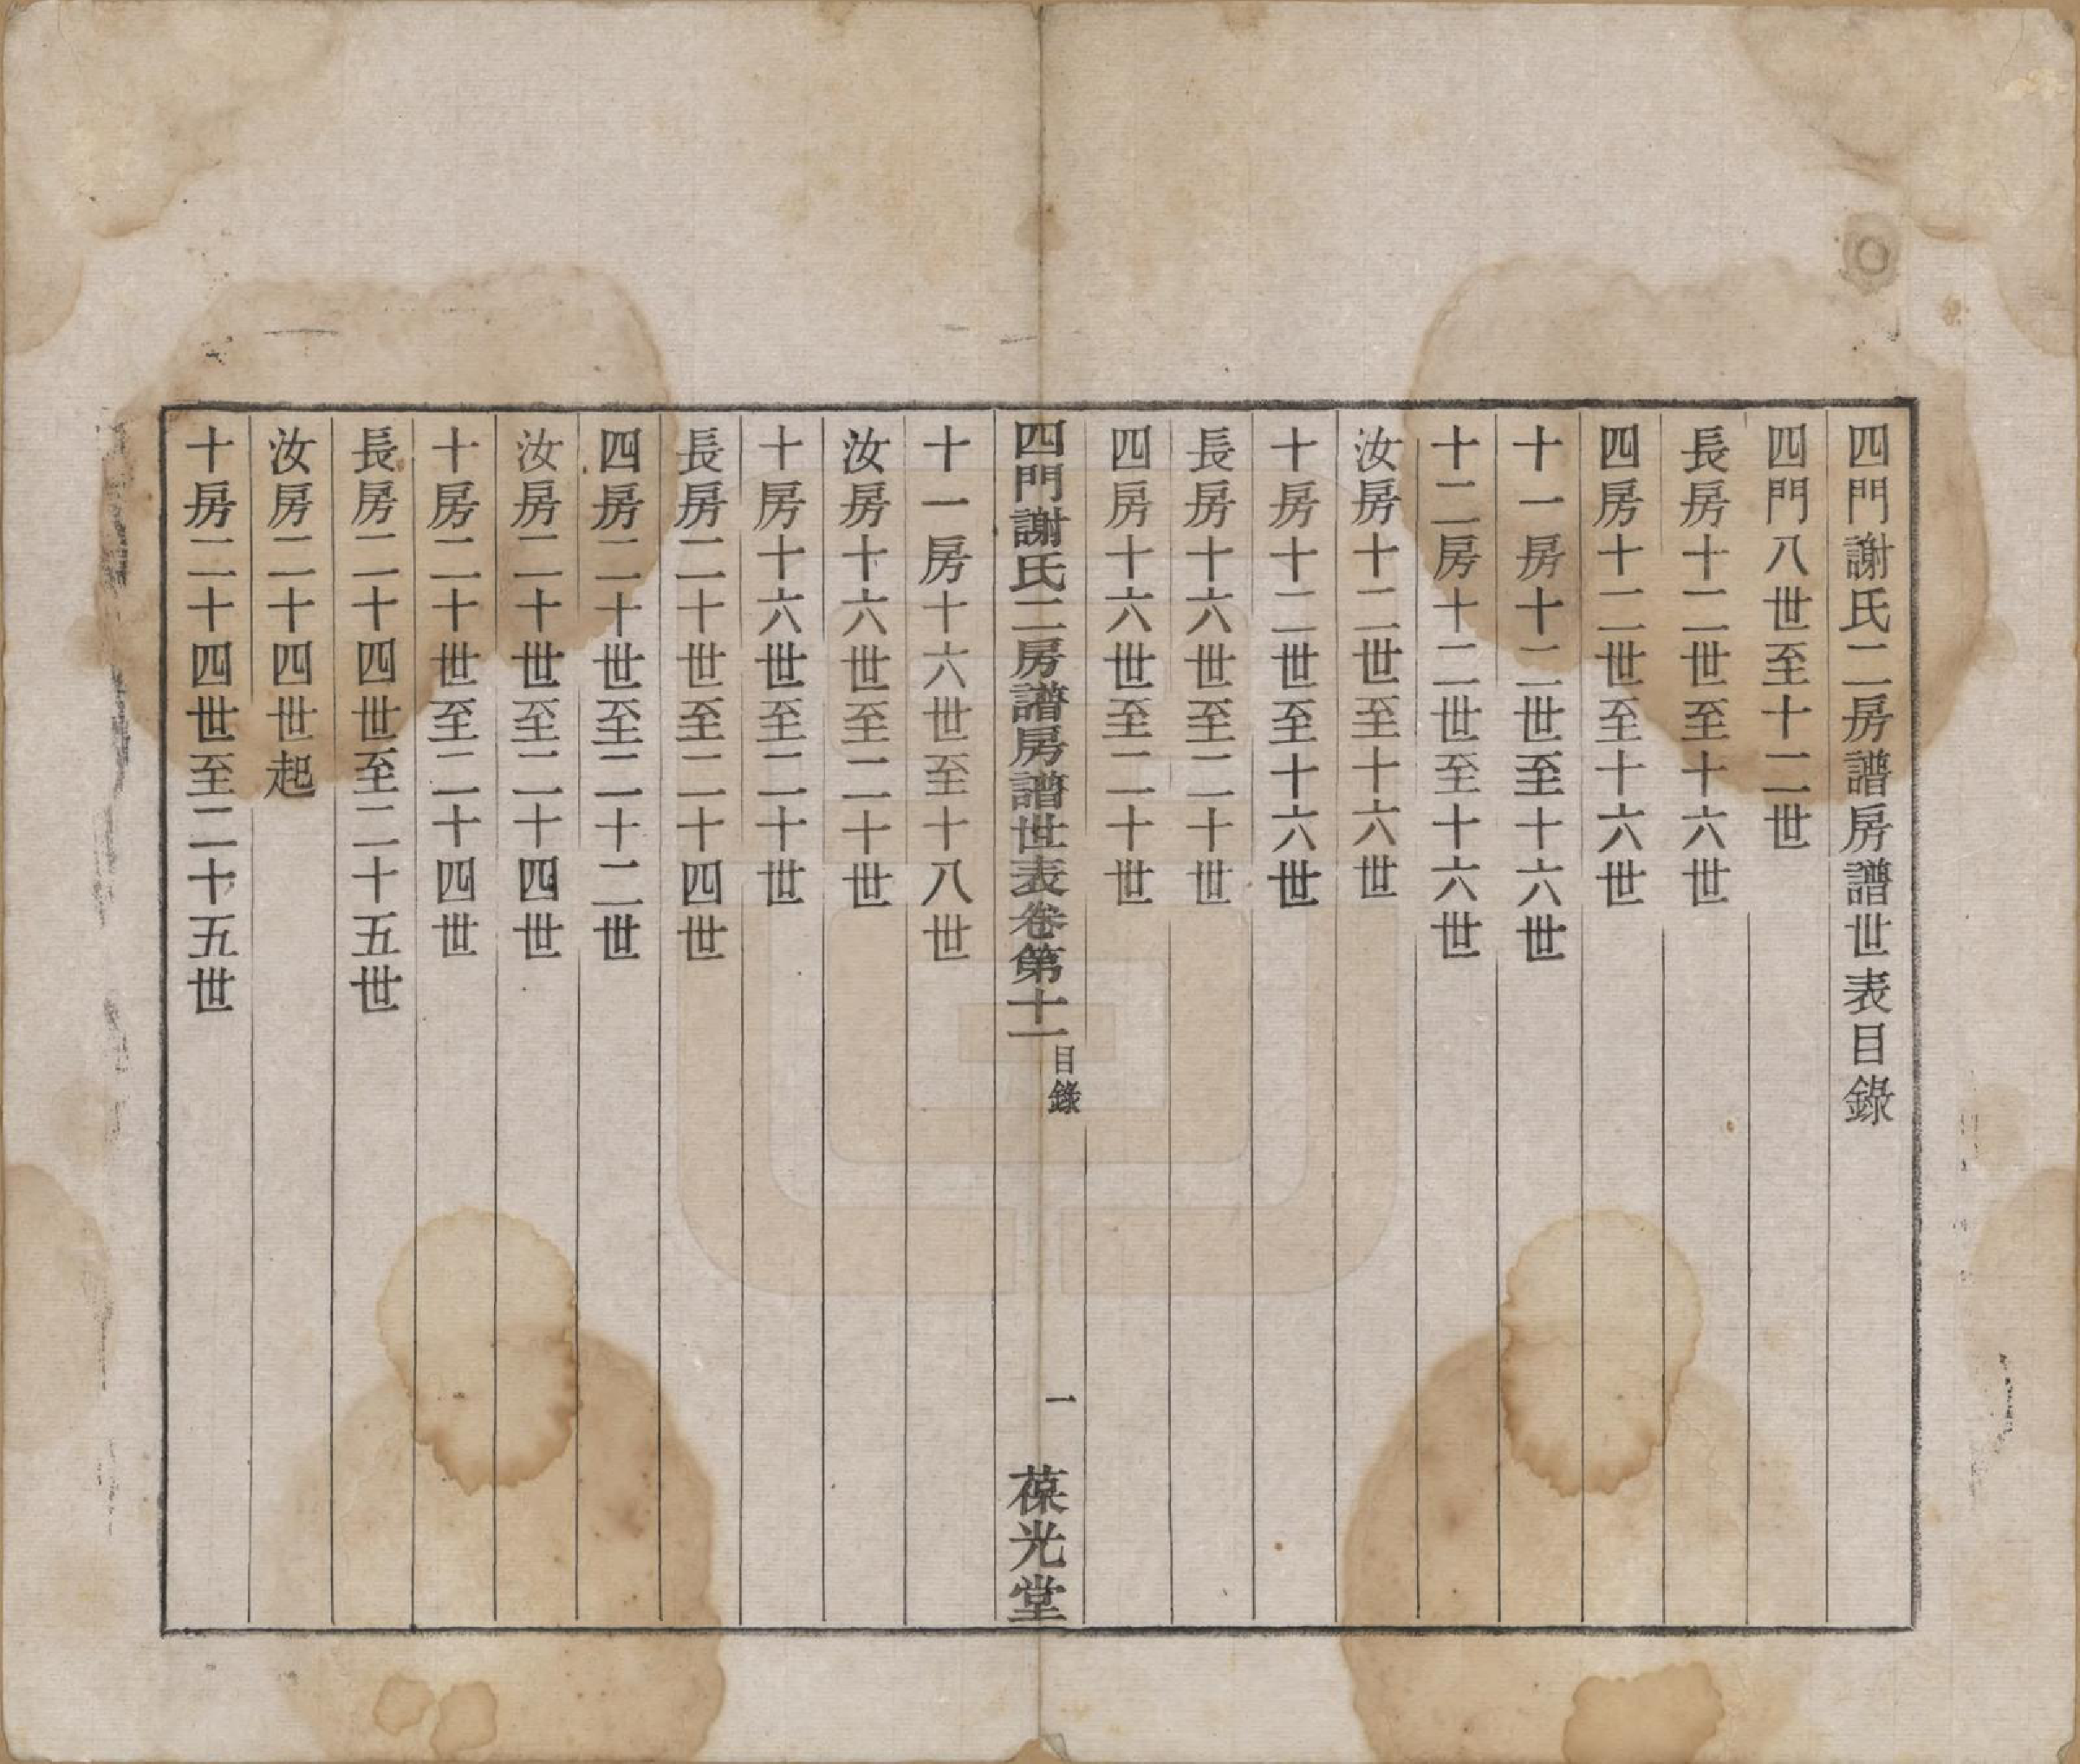 四門謝氏二房譜房譜世表目錄
四門八世至十二世
長房十二世至十六世
四房十二世至十六世
十一房十二世至十六世
十二房十二世至十六世
汝房十二世至十六世
十房十二世至十六世
長房十六世至二十世
四房十六世至二十世
四門謝氏二房譜房譜世表卷第十一
目錄
一
葆光堂
十一房十六世至十八世
汝房十六世至二十世
十房十六世至二十世
長房二十世至二十四世
四房二十世至二十二世
汝房二十世至二十四世
十房二十世至二十四世
長房二十四世至二十五世
汝房二十四世起
十房二十四世至二十五世